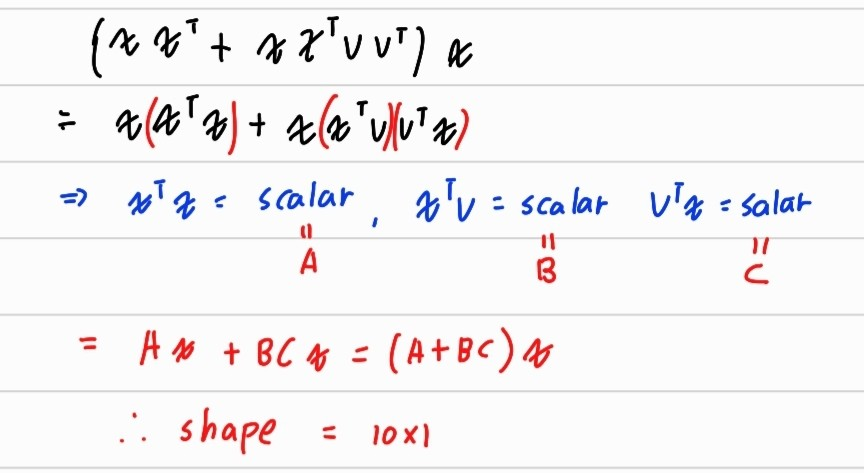 (x xᵀ + x xᵀ v vᵀ) x
= x(xᵀx) + x(xᵀv)(vᵀx)
⇒ xᵀx = scalar, xᵀv = scalar vᵀx = salar
= A = B = C
= Ax + BCx = (A+BC)x
∴ shape = 10×1